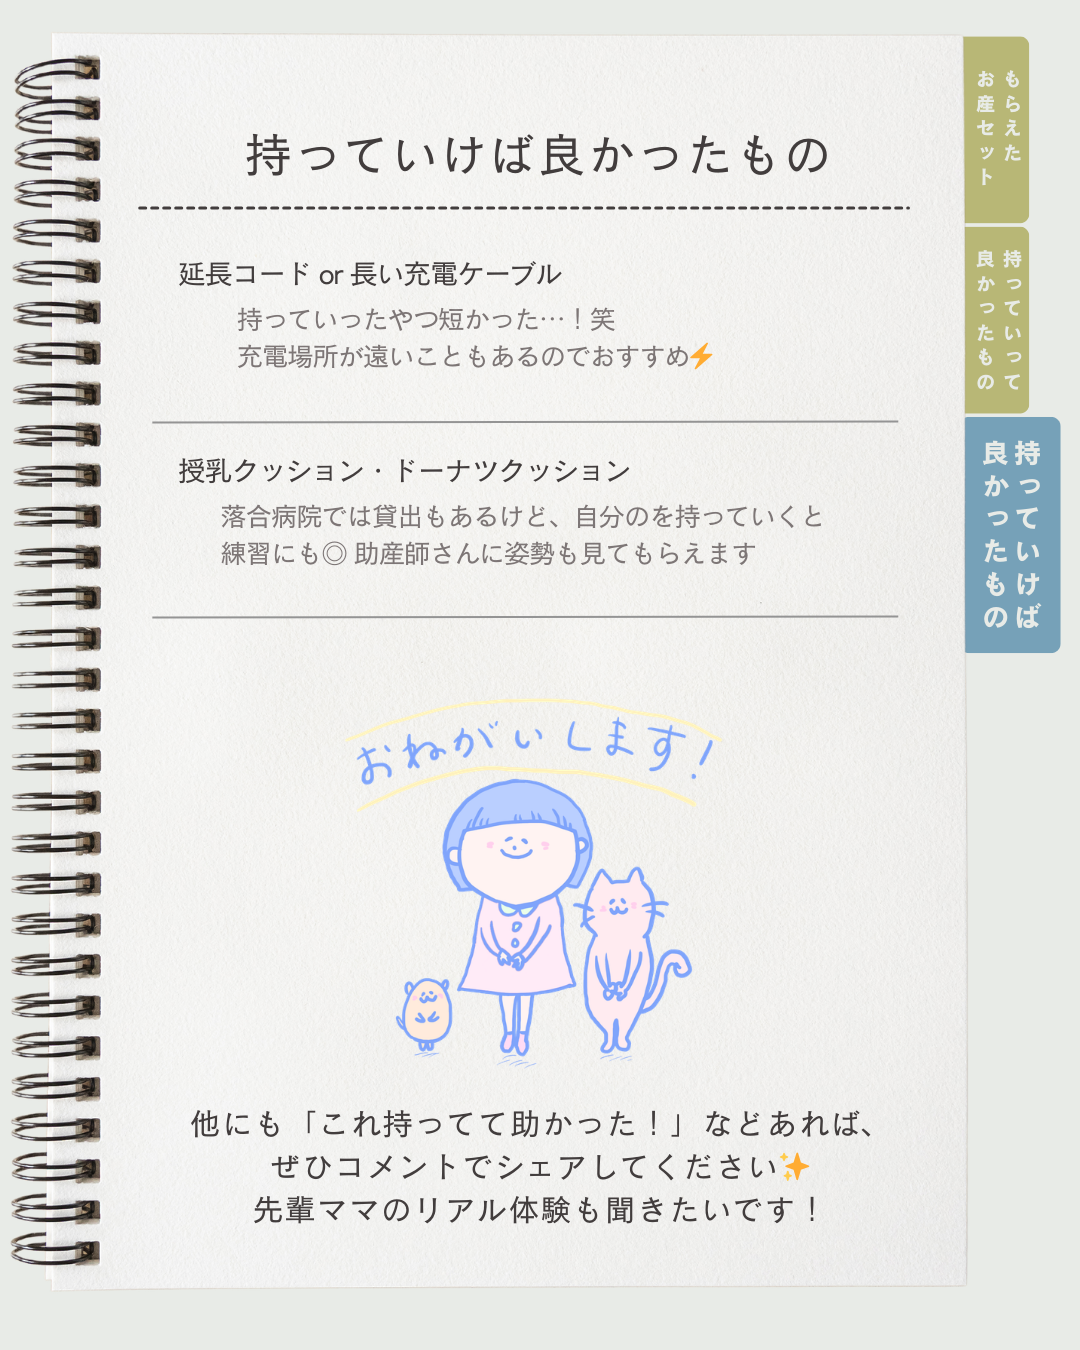 持っていけば良かったもの
延長コード or 長い充電ケーブル
持っていったやつ短かった…！笑
充電場所が遠いこともあるのでおすすめ⚡
授乳クッション・ドーナツクッション
落合病院では貸出もあるけど、自分のを持っていくと
練習にも◎ 助産師さんに姿勢も見てもらえます
おねがいします!
他にも「これ持ってて助かった！」などあれば、
ぜひコメントでシェアしてください✨
先輩ママのリアル体験も聞きたいです！
もらえた
お産セット
持っていって
良かったもの
持っていけば
良かったもの